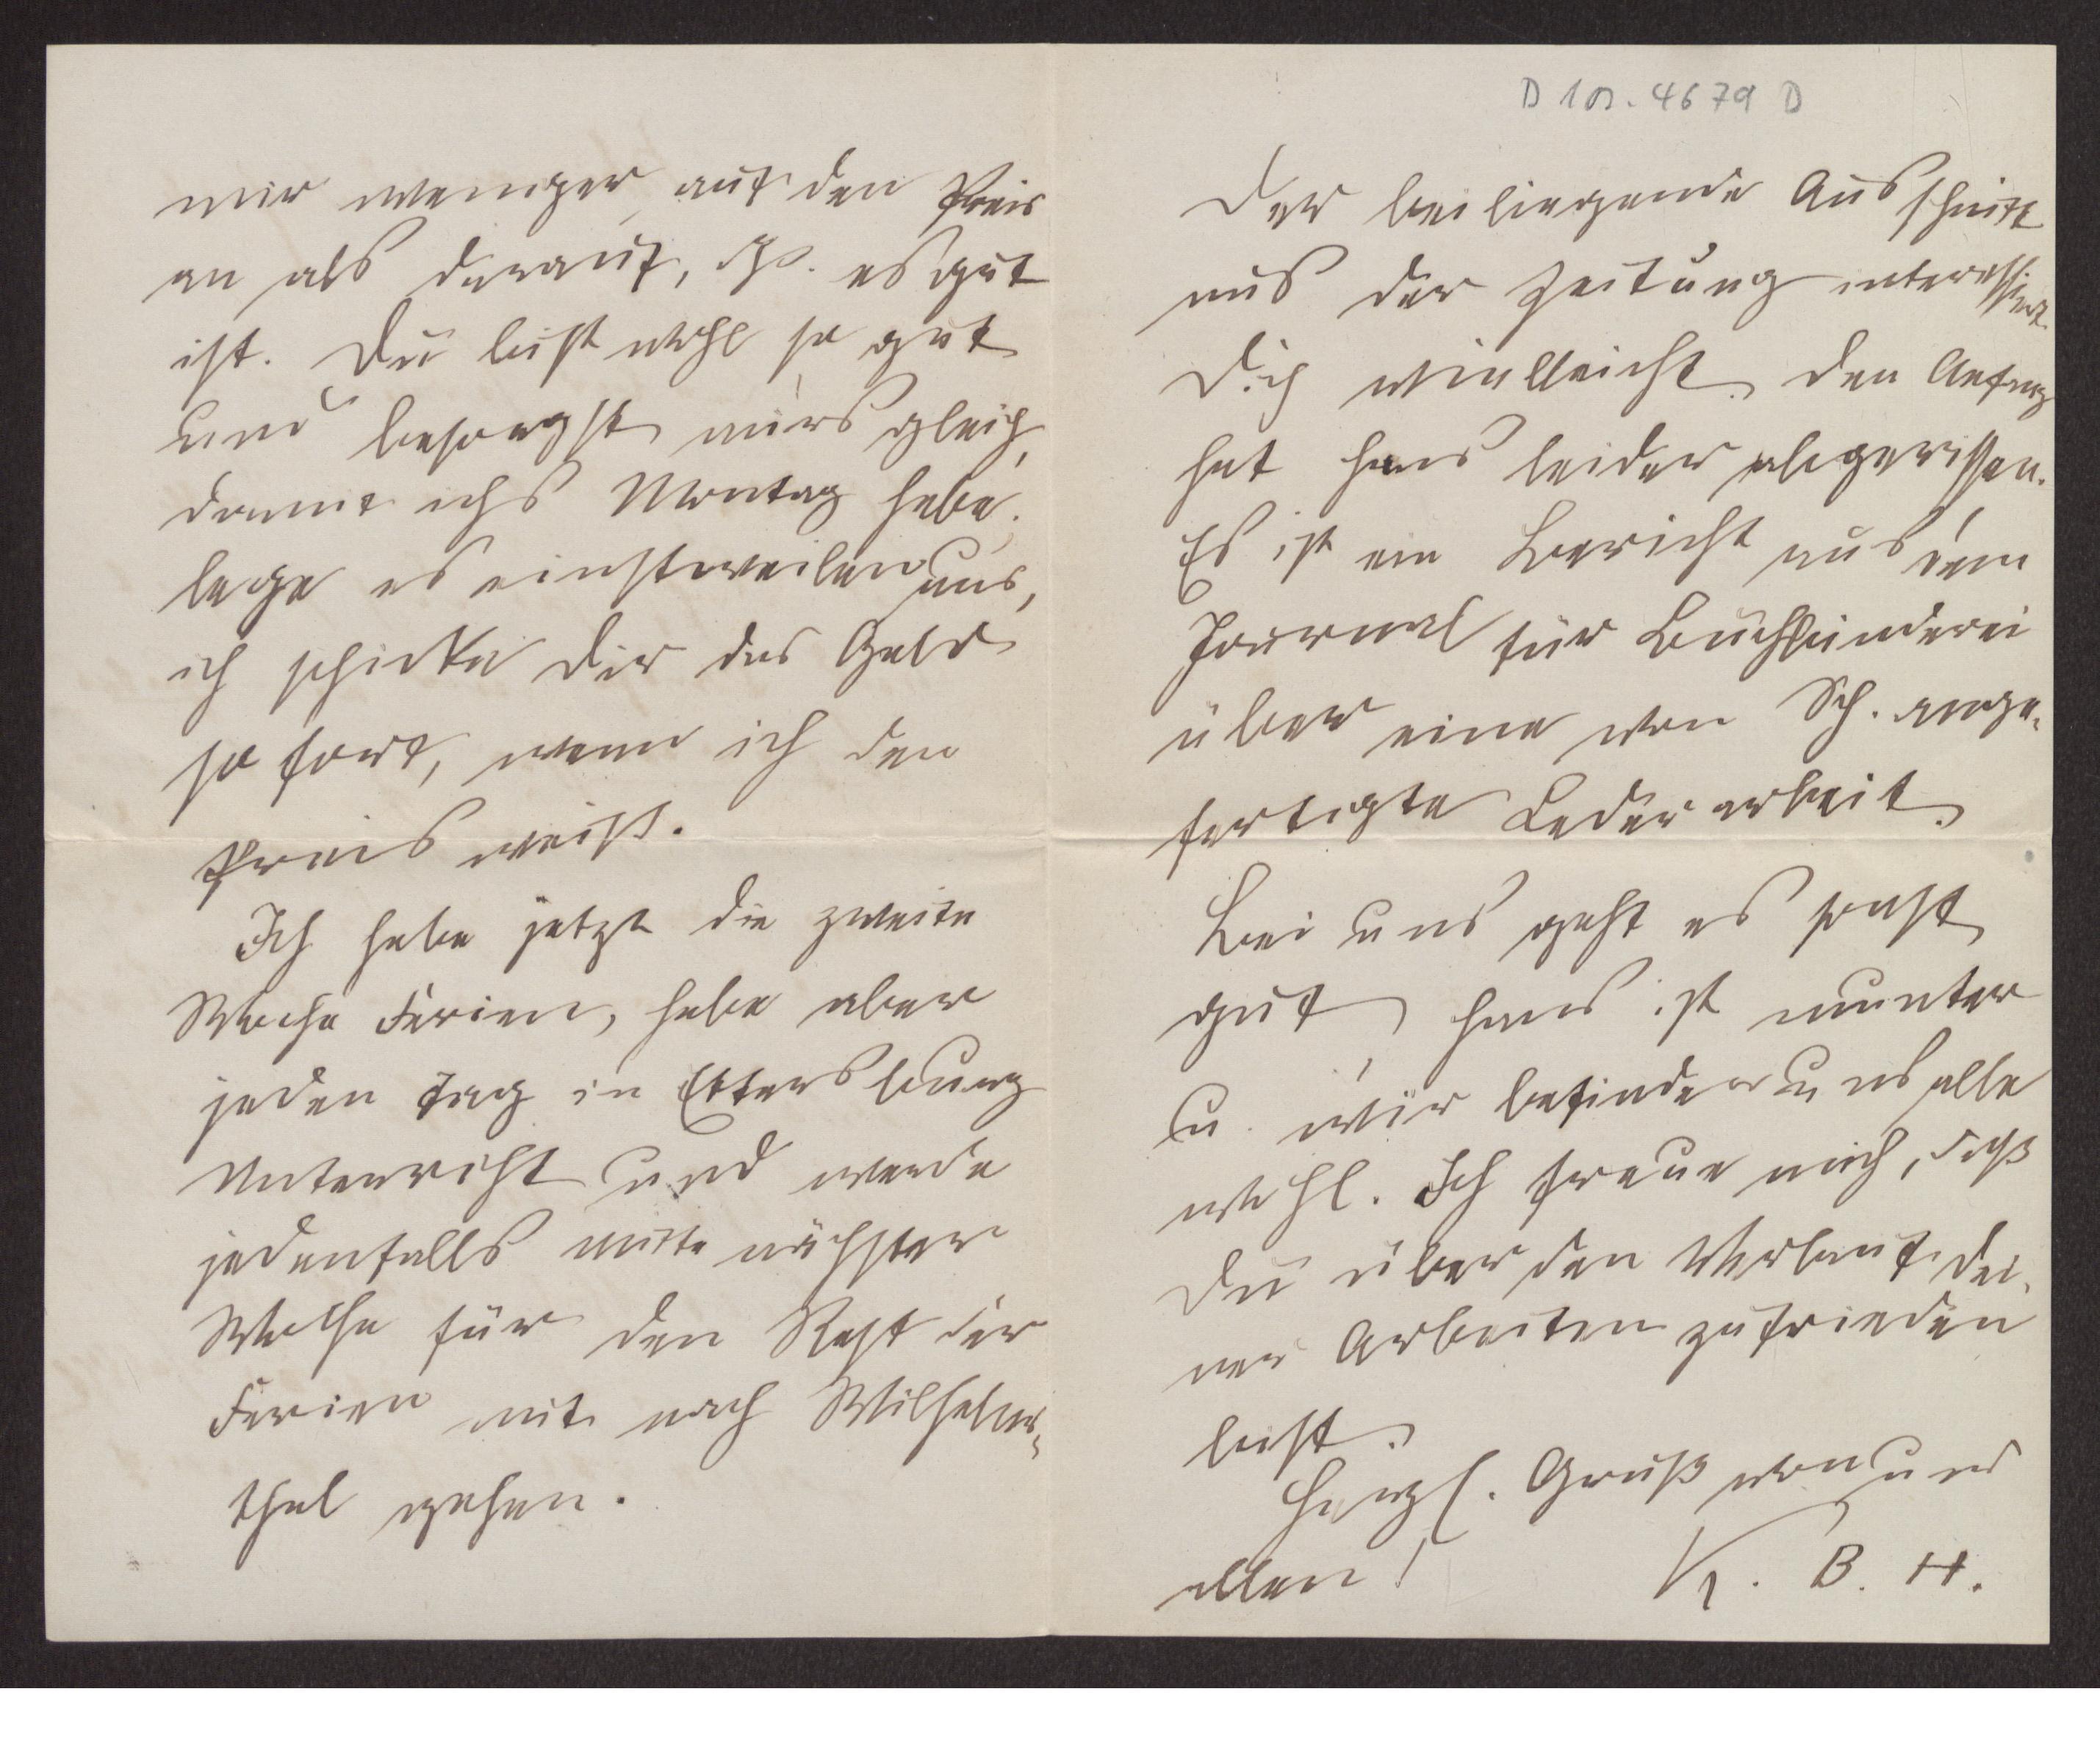 mir weniger auf den Preis
an als darauf, dß. es gut
ist. Du bist wohl so gut
und besorgst mirs gleich,
damit ichs Montag habe.
lege es einstweilen aus,
ich schicke Dir das Geld
sofort, wenn ich den
Preis weiß.
Ich habe jetzt die zweite
Woche Ferien, habe aber
jeden Tag in Ettersburg
Unterricht und werde
jedenfalls Mitte nächster
Woche für den Rest der
Ferien mit nach Wilhelms-
thal gehen.
D 101. 4679 D
Der beiliegende Ausschnitt
aus der Zeitung interessirt
Dich vielleicht. Den Anfang
hat Hans leider abgerissen.
Es ist ein Bericht aus dem
Journal für Buchbinderei
über eine von Sch. ange-
fertigte Lederarbeit.
Bei uns geht es sonst
gut, Hans ist munter
u. wir befinden uns alle
wohl. Ich freue mich, daß
Du über den Verlauf dei-
ner Arbeiten zufrieden
bist.
Herzl. Gruß von uns
allen!
K. B. H.